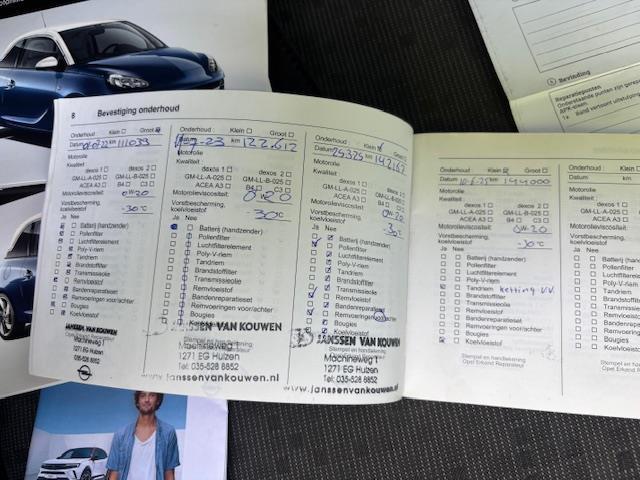 8 Bevestiging onderhoud
Onderhoud Klein Groot
Datum 0722 km 111033
Motorolie
Kwaliteit:
dexos 1 dexos 2
GM-LL-A-025 GM-LL-B-025
ACEA A3 B4 C3
Motorolieviscositeit 0W20
Vorstbescherming, koelvloeistof -30°C
Ja Nee
Batterij (handzender)
Pollenfilter
Luchtfilterelement
Poly-V-riem
Tandriem
Brandstoffilter
Transmissieolie
Remvloeistof
Bandenreparatieset
Remvoeringen voor/achter
Bougies
Koelvloeistof
JANSSEN VAN KOUWEN
Machineweg 1
1271 EG Huizen
035-528 8852
Onderhoud Klein Groot
Datum 7-23 km 122.612
Motorolie
Kwaliteit:
dexos 1 dexos 2
GM-LL-A-025 GM-LL-B-025
ACEA A3 B4 C3
Motorolieviscositeit 0W20
Vorstbescherming, koelvloeistof -30°C
Ja Nee
Batterij (handzender)
Pollenfilter
Luchtfilterelement
Poly-V-riem
Tandriem
Brandstoffilter
Transmissieolie
Remvloeistof
Bandenreparatieset
Remvoeringen voor/achter
Bougies
JANSSEN VAN KOUWEN
Machineweg 1
1271 EG Huizen
Tel: 035-528 8852
www.janssenvankouwen.nl
Onderhoud Klein Groot
Datum km
Motorolie
Kwaliteit:
dexos 1 dexos 2
GM-LL-A-025 GM-LL-B-025
ACEA A3 B4 C3
Motorolieviscositeit
Vorstbescherming, koelvloeistof
Ja Nee
Batterij (handzender)
Pollenfilter
Luchtfilterelement
Poly-V-riem
Tandriem
Brandstoffilter
Transmissieolie
Remvloeistof
Bandenreparatieset
Remvoeringen
Bougies
Koelvloeistof
JANSSEN VAN KOUWEN
Stempel en handtekening
Machineweg 1
1271 EG Huizen
Tel: 035-528 8852
www.janssenvankouwen.nl
Onderhoud Klein Groot
Datum 10-6-25 km 144000
Motorolie
Kwaliteit:
dexos 1 dexos 2
GM-LL-A-025 GM-LL-B-025
ACEA A3 B4 C3
Motorolieviscositeit 0W20
Vorstbescherming, koelvloeistof
Ja Nee
Batterij (handzender)
Pollenfilter
Luchtfilterelement
Poly-V-riem
Tandriem ketting V.V.
Brandstoffilter
Transmissieolie
Remvloeistof
Bandenreparatieset
Remvoeringen voor/achter
Bougies
Koelvloeistof
Stempel en handtekening
Opel Erkend Reparateur
Onderhoud Klein
Datum km
Motorolie
Kwaliteit:
dexos 1
GM-LL-A-025
ACEA A3
Motorolieviscositeit
Vorstbescherming, koelvloeistof
Ja Nee
Batterij (handzender)
Pollenfilter
Luchtfilterelement
Poly-V-riem
Tandriem
Brandstoffilter
Transmissieolie
Remvloeistof
Bandenreparatieset
Remvoeringen voor/achter
Bougies
Koelvloeistof
Stempel en handtekening
Opel Erkend Reparateur
5 Bevinding
Reparatiepunten
APK-eisen
1a Band vertoont